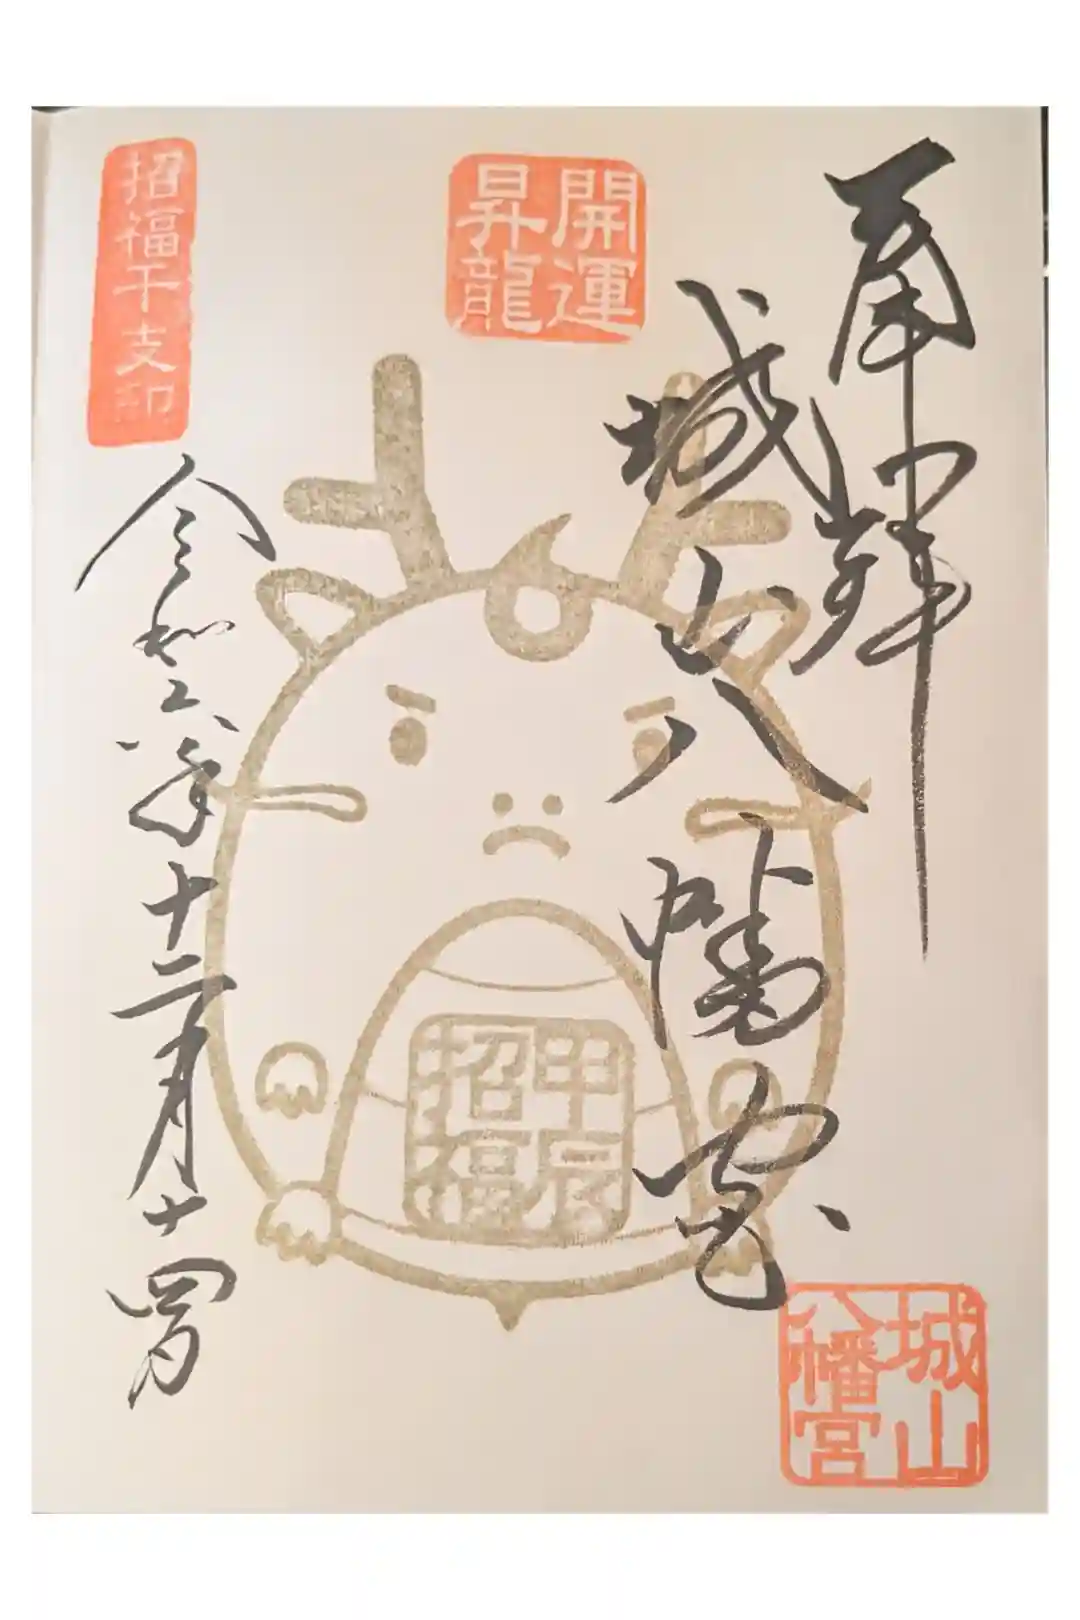 奉拝
城山八幡宮
開運
昇龍
甲辰
招福
城山
八幡宮
招福干支印
令和六年十二月十四日